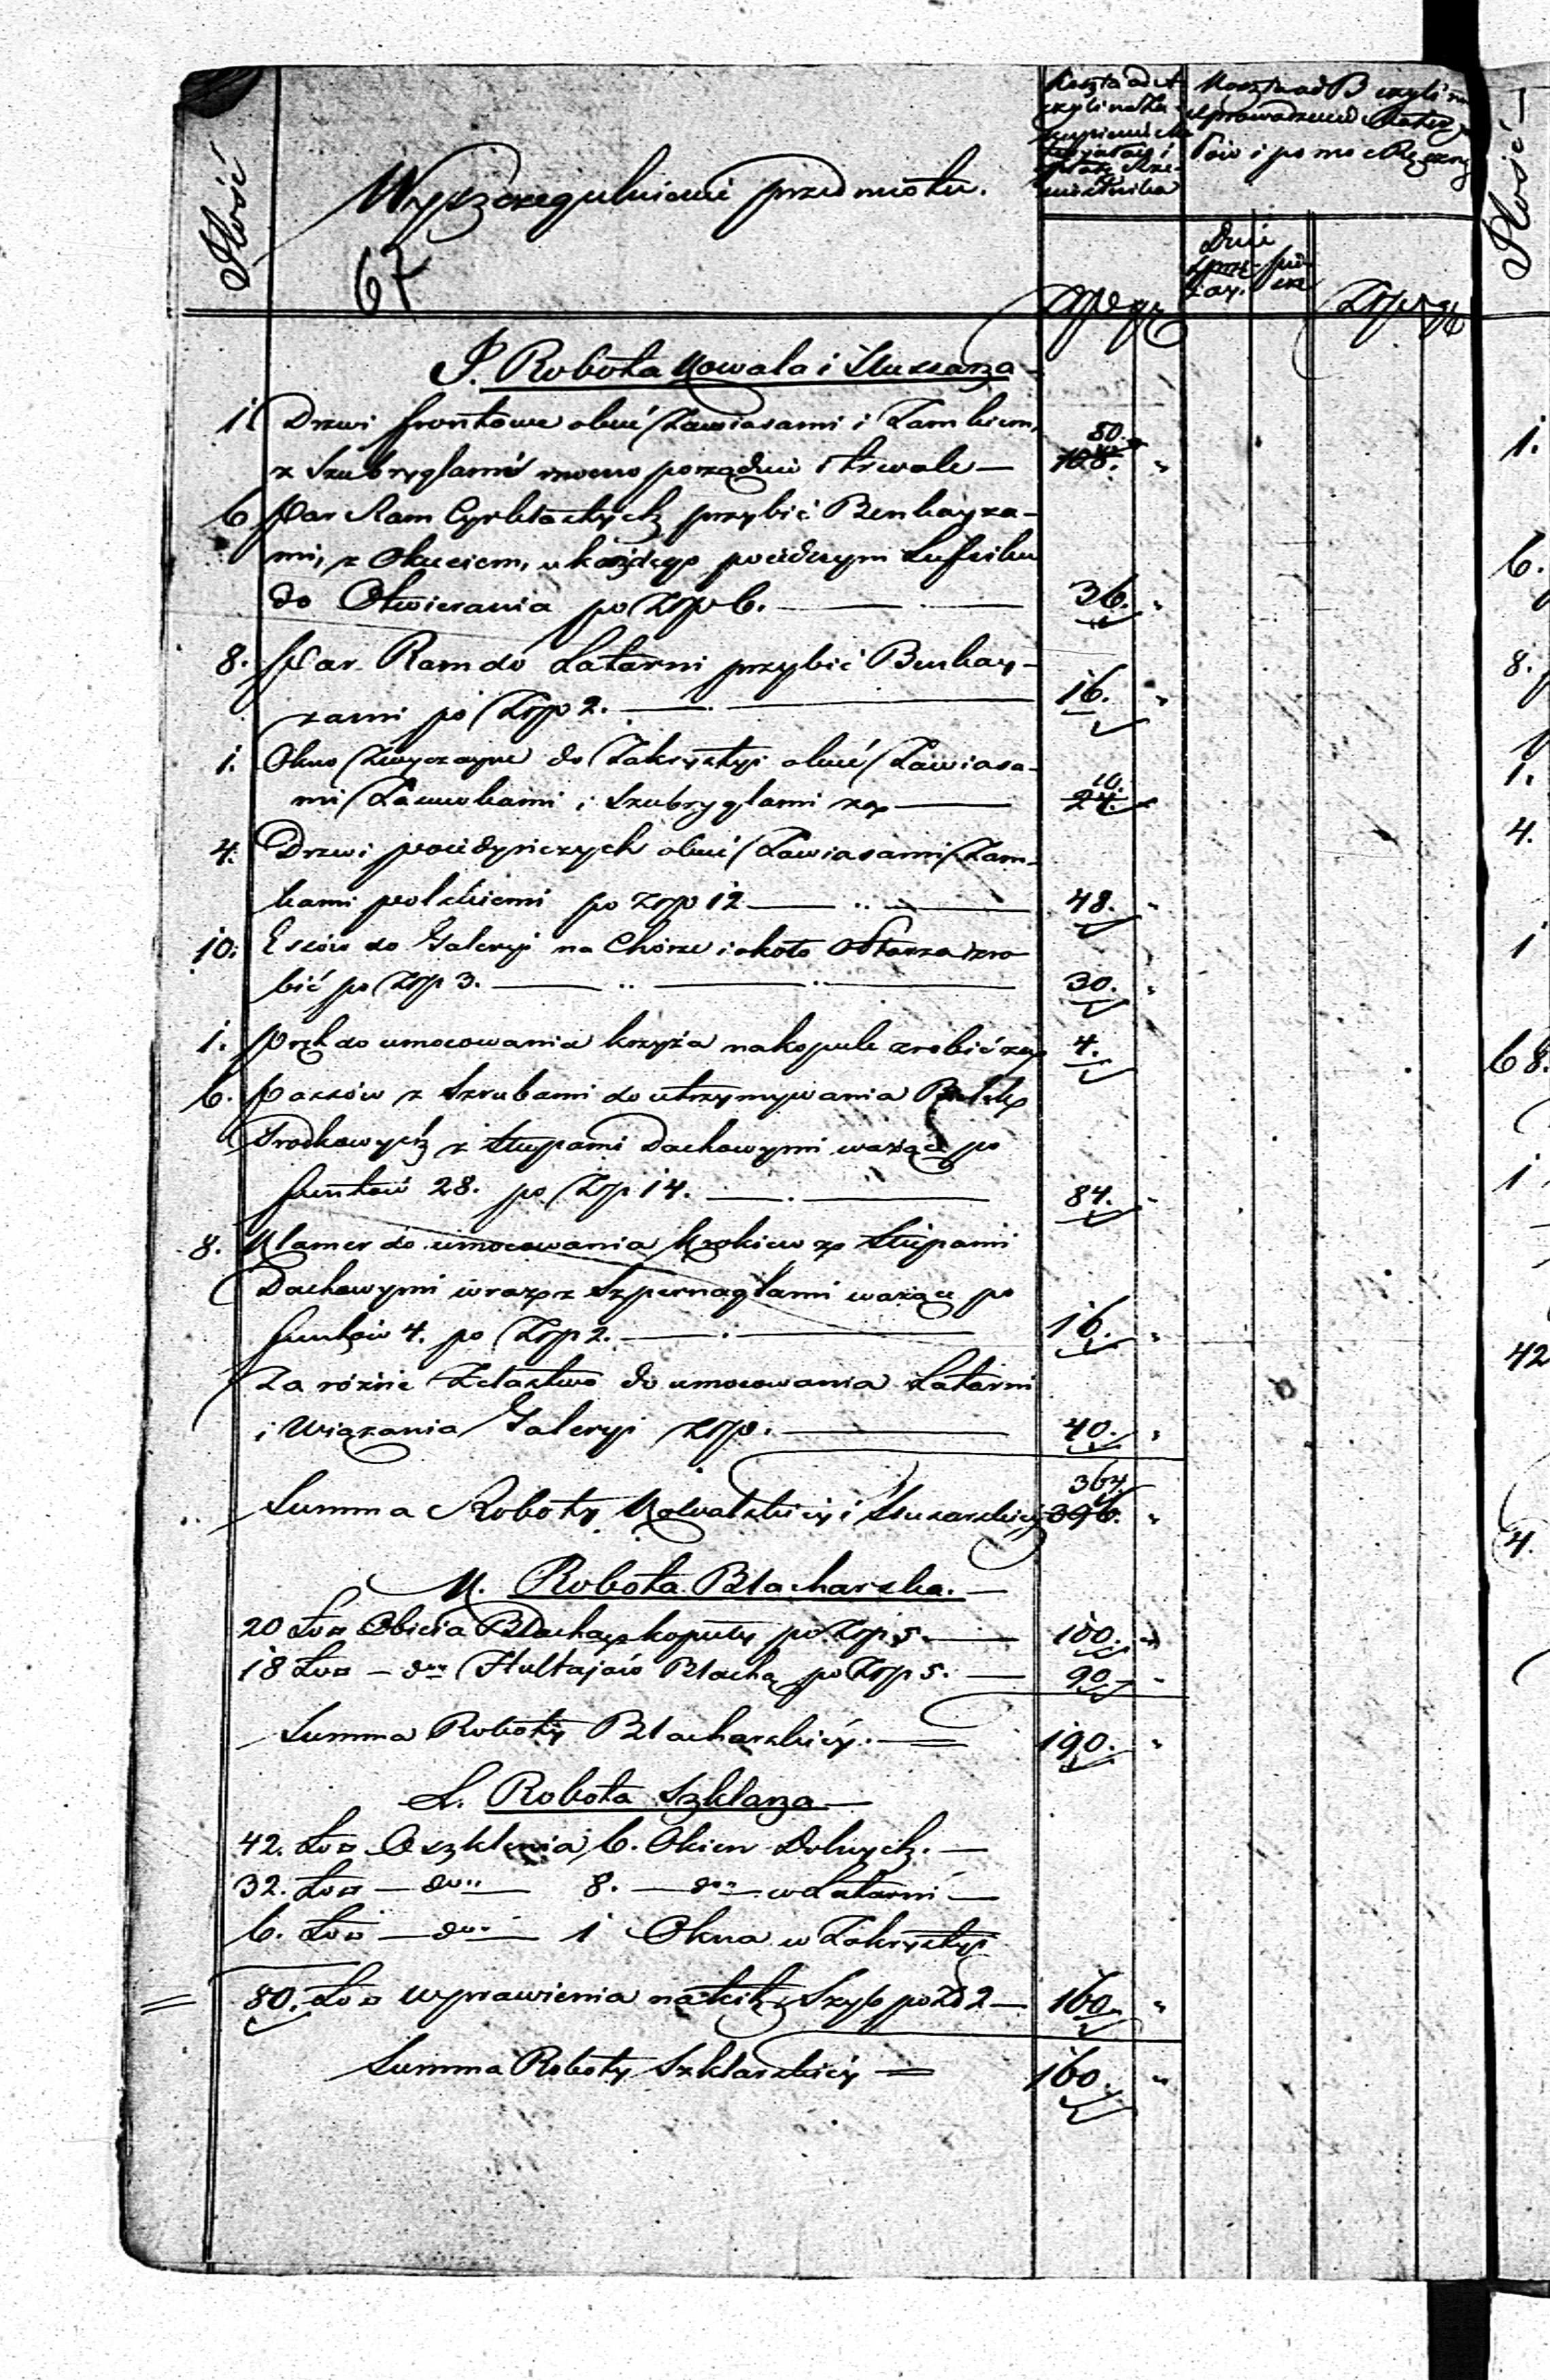 Ilość
Wyszczegulnienie przedmiotu.
67
Koszta od A
czyli na Za-
kupienie Ma-
teryałów i
płacę Rze-
mieślnika
Koszta od B czyli na
sprowadzenie Materya-
łów i pomoc Ręczną
Dnie
sprzę-
żay.
pie-
sze
Złp gr
Złp gr
J. Robota Kowala i Slusarza
1. Drzwi frontowe okuć Zawiasami i Zamkiem,
z Szubryglami mocno porządnie i trwale — 80.
128. "
6 Par Ram Cyrklastych przybić Benkayza-
mi, z Okuciem, u każdego pojedeńczym Lufciku
do Otwierania po Złp 6. — 36. "
8. Par Ram do Latarni przybić Benkay-
zami po Złp 2. — 16. "
1. Okno Zwyczayne do Zakrystyi okuć Zawiasa-
mi Zasuwkami i Szubryglami złp — 10.
24.
4. Drzwi pojedyńczych okuć Zawiasami Zam-
kami polskiemi po złp 12 — 48. "
10. Esców do Galeryi na Chórze i około Ołtarza zro-
bić po Złp 3. — 30. "
1. Pręt do umocowania krzyża na kopule zrobić złp 4.
6. Passów z Szrubami do utrzymywania Belek
Srodkowych z Słupami Dachowymi ważące po
funtów 28. po Złp 14. — 84. "
8. Klamer do umocowania Krokiew ze Słupami
Dachowymi wraz z Szpernaglami ważące po
funtów 4. po Złp 2. — 16. "
Za różne Żelastwo do umocowania Latarni
i Wiązania Galeryi złp. — 40. "
364.
Summa Roboty Kowalskiey i Slusarskiey 396. "
K. Robota Blacharska. —
20 Ło□ Obicia Blachą kopuły po Złp 5. — 100. "
18 Ło□ — dto Blachą po Złp 5. — 90. "
Summa Roboty Blacharskiéy. = 190. "
L. Robota Szklarza —
42. Ło□ Oszklenia 6. Okien Dolnych. —
32. Ło□ — dto — 8. — dto — w Latarni —
6. Ło□ — dto — 1 Okna w Zakrystyi
80. Ło□ wprawienia na kit Szyb po Zł 2 — 160. "
Summa Roboty Szklarskiéy = 160. "
Ilość —
1.
6.
8.
1.
4.
1
68.
1
42
4.